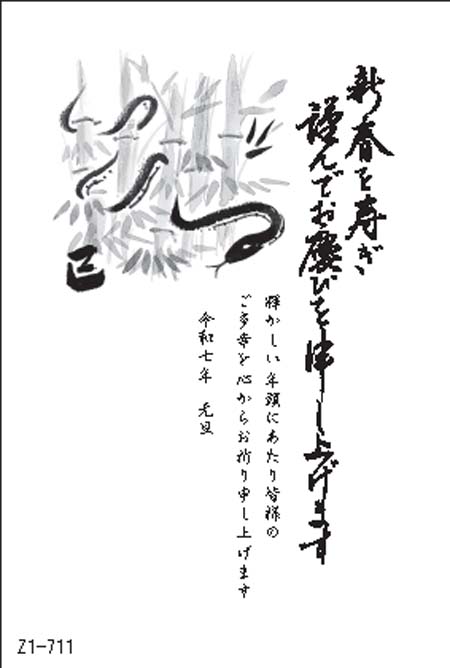 新春を寿ぎ
謹んでお慶びを申し上げます
輝かしい年頭にあたり皆様の
ご多幸を心からお祈り申し上げます
令和七年 元旦
巳
Z1-711